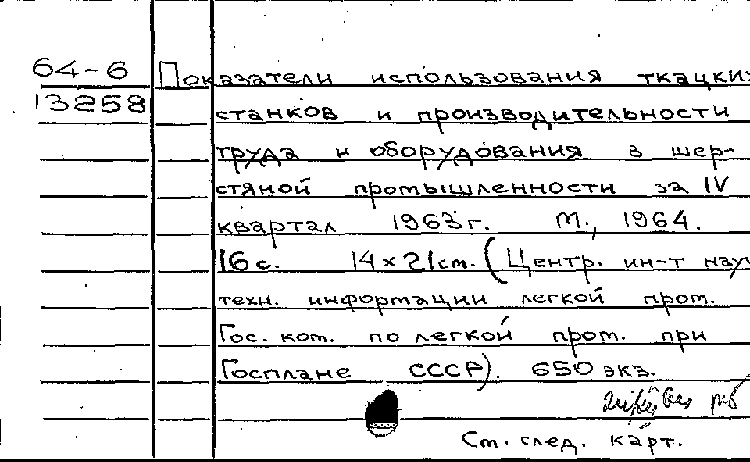 64-6 Показатели использования ткацких
13258 станков и производительности
труда и оборудования в шер-
стяной промышленности за IV
квартал 1963 г. М., 1964.
16 с. 14 х 21 см. (Центр. ин-т науч
техн. информации легкой пром.
Гос. ком. по легкой пром. при
Госплане СССР). 650 экз.
См. след. карт.